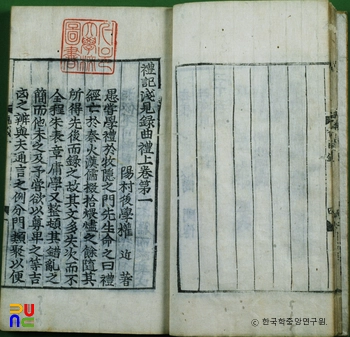 禮記淺見録曲禮上卷第一
陽村後學權近著
愚嘗學禮於牧隱之門先生命之曰禮
經亡於秦火漢儒掇拾煨燼之餘隨其
所得先後而録之故其文多失次而不
全程朱表章庸學又整頓其錯亂之
簡而他未之及予嘗欲以尊卑之等吉
凶之辨與夫通言之例分門類聚以便
ⓒ 한국학중앙연구원